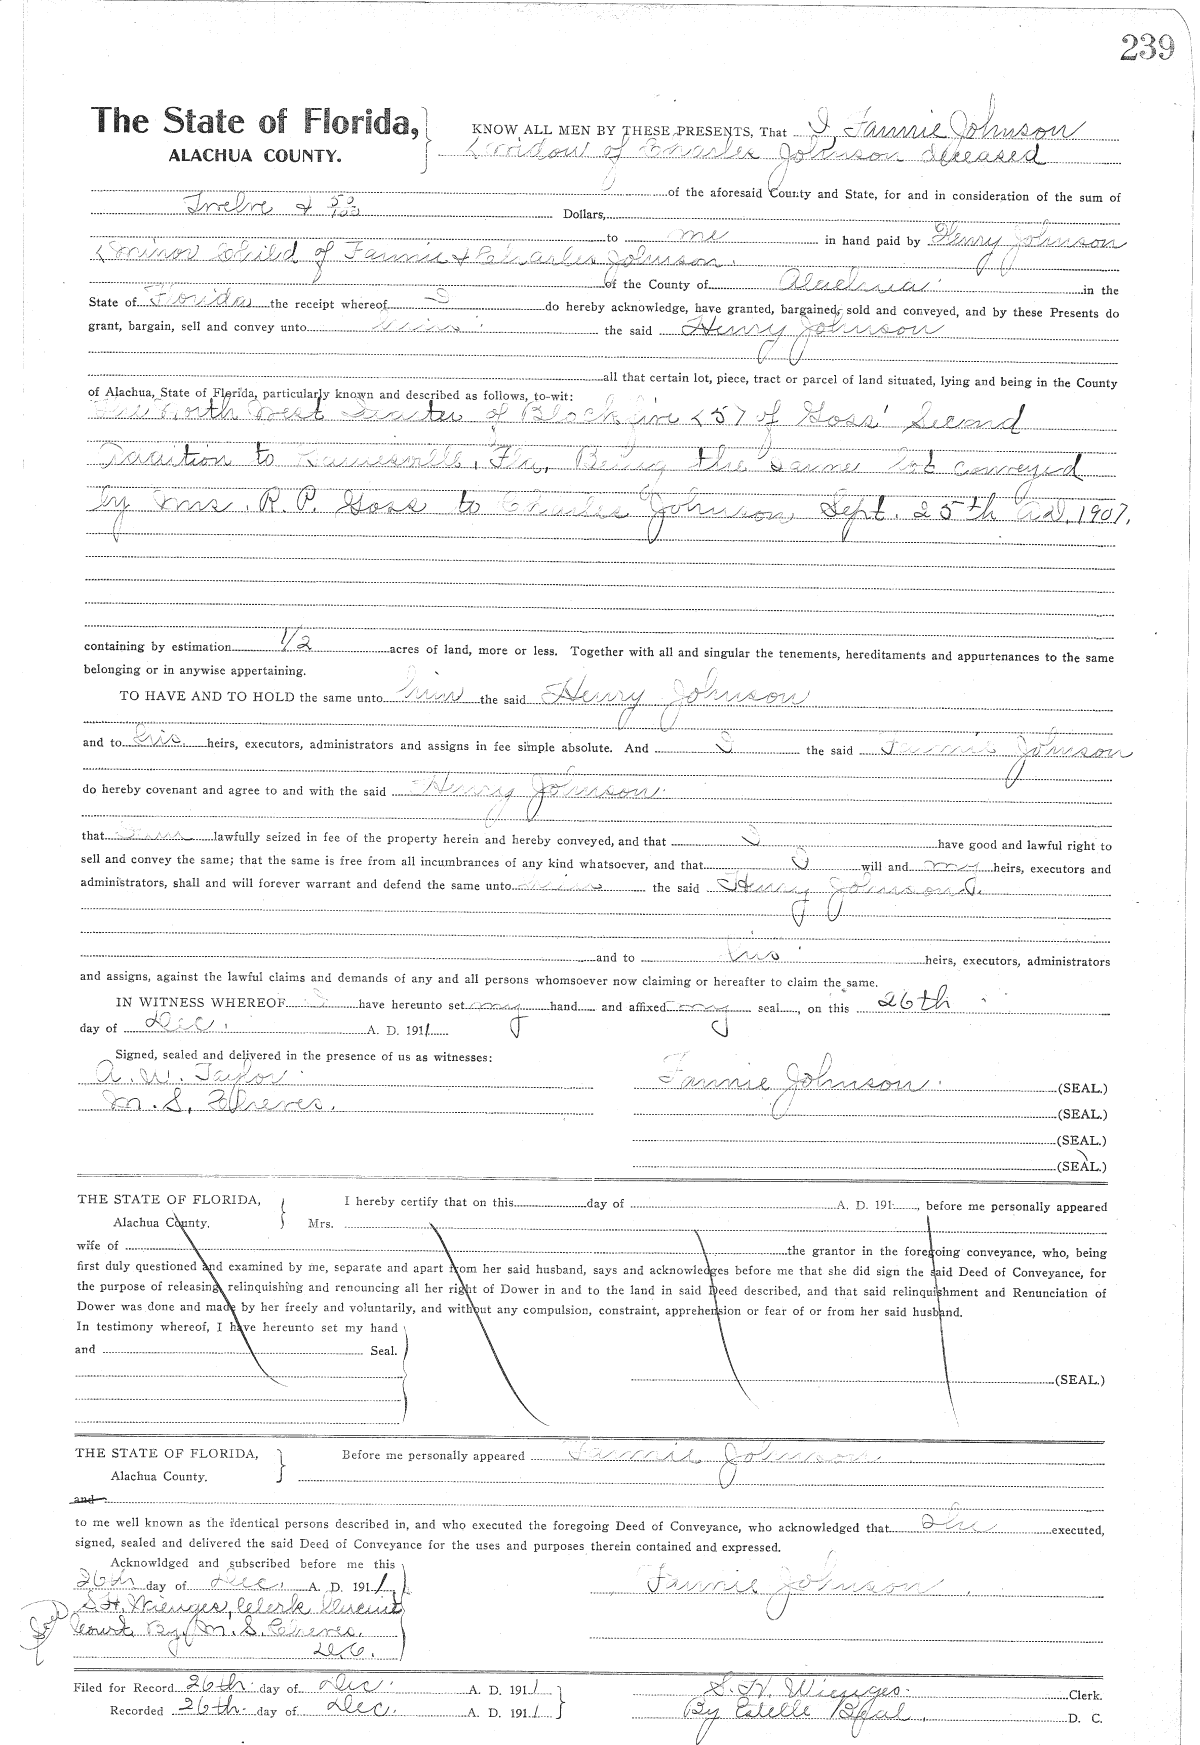 239
The State of Florida,
ALACHUA COUNTY.
KNOW ALL MEN BY THESE PRESENTS, That I, Fannie Johnson
(Widow of Charles Johnson deceased
of the aforesaid County and State, for and in consideration of the sum of
Twelve & 50/100 Dollars,
to me in hand paid by Henry Johnson
(Minor Child of Fannie & Charles Johnson.
of the County of Alachua in the
State of Florida the receipt whereof I do hereby acknowledge, have granted, bargained, sold and conveyed, and by these Presents do
grant, bargain, sell and convey unto him the said Henry Johnson
all that certain lot, piece, tract or parcel of land situated, lying and being in the County
of Alachua, State of Florida, particularly known and described as follows, to-wit:
The North West Quarter of Block five (5) of Goss' Second
Addition to Gainesville, Fla, Being the same lot conveyed
by Mrs. R. P. Goss to Charles Johnson, Sept. 25th A.D. 1907.
containing by estimation 1/2 acres of land, more or less. Together with all and singular the tenements, hereditaments and appurtenances to the same
belonging or in anywise appertaining.
TO HAVE AND TO HOLD the same unto him the said Henry Johnson
and to his heirs, executors, administrators and assigns in fee simple absolute. And I the said Fannie Johnson
do hereby covenant and agree to and with the said Henry Johnson
that lawfully seized in fee of the property herein and hereby conveyed, and that I have good and lawful right to
sell and convey the same; that the same is free from all incumbrances of any kind whatsoever, and that I will and my heirs, executors and
administrators, shall and will forever warrant and defend the same unto him the said Henry Johnson
and to his heirs, executors, administrators
and assigns, against the lawful claims and demands of any and all persons whomsoever now claiming or hereafter to claim the same.
IN WITNESS WHEREOF I have hereunto set my hand and affixed my seal, on this 26th
day of Dec. A. D. 1911
Signed, sealed and delivered in the presence of us as witnesses:
A. W. Taylor
M. S. Cheves.
Fannie Johnson (SEAL.)
(SEAL.)
(SEAL.)
(SEAL.)
THE STATE OF FLORIDA,
Alachua County.
I hereby certify that on this day of A. D. 191 , before me personally appeared
Mrs.
wife of the grantor in the foregoing conveyance, who, being
first duly questioned and examined by me, separate and apart from her said husband, says and acknowledges before me that she did sign the said Deed of Conveyance, for
the purpose of releasing, relinquishing and renouncing all her right of Dower in and to the land in said Deed described, and that said relinquishment and Renunciation of
Dower was done and made by her freely and voluntarily, and without any compulsion, constraint, apprehension or fear of or from her said husband.
In testimony whereof, I have hereunto set my hand
and Seal.
(SEAL.)
THE STATE OF FLORIDA,
Alachua County.
Before me personally appeared Fannie Johnson
and
to me well known as the identical persons described in, and who executed the foregoing Deed of Conveyance, who acknowledged that She executed,
signed, sealed and delivered the said Deed of Conveyance for the uses and purposes therein contained and expressed.
Acknowldged and subscribed before me this
26th day of Dec. A. D. 1911
Fannie Johnson
S. H. Wienges, Clerk Circuit
Court By, M. S. Cheves.
D.C.
Filed for Record 26th day of Dec. A. D. 1911
Recorded 26th day of Dec. A. D. 1911
S. H. Wienges. Clerk.
By Estelle Beal, D. C.